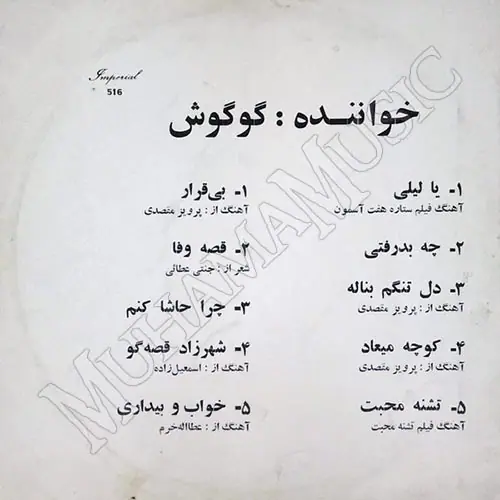 Imperial
516
خواننده : گوگوش
۱ـ یا لیلی
آهنگ فیلم ستاره هفت آسمون
۲ـ چه بدرفتی
۳ـ دل تنگم بناله
آهنگ از : پرویز مقصدی
۴ـ کوچه میعاد
آهنگ از : پرویز مقصدی
۵ـ تشنه محبت
آهنگ فیلم تشنه محبت
۱ـ بی‌قرار
آهنگ از : پرویز مقصدی
۲ـ قصه وفا
شعر از : جنتی عطائی
۳ـ چرا حاشا کنم
۴ـ شهرزاد قصه‌گو
آهنگ از : اسمعیل‌زاده
۵ـ خواب و بیداری
آهنگ از : عطااله‌خرم
MUHAMAMUSIC
MUHAMAMUSIC